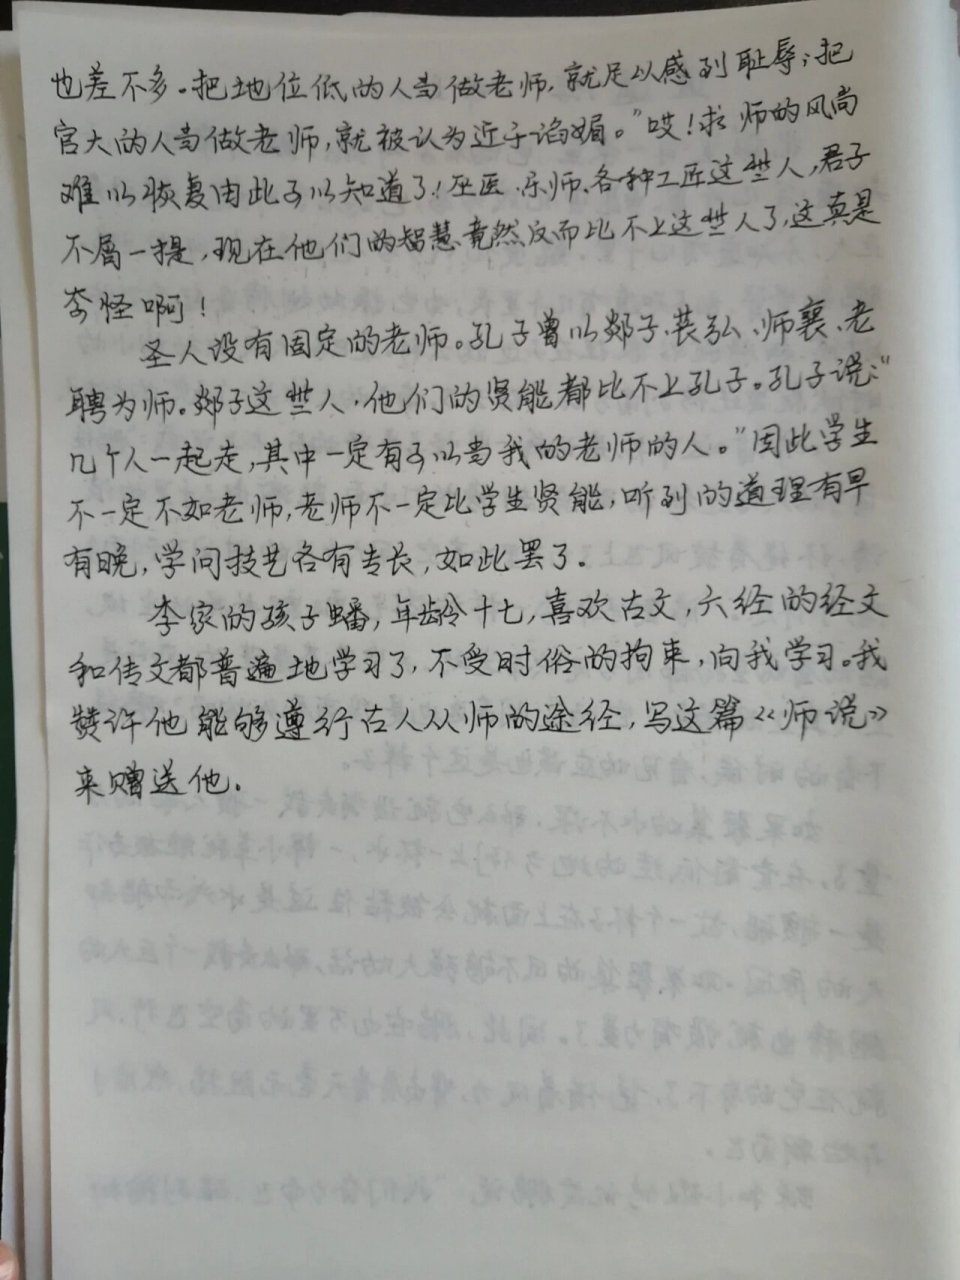 也差不多。把地位低的人当做老师，就足以感到耻辱；把
官大的人当做老师，就被认为近于谄媚。”哎！求师的风尚
难以恢复由此可以知道了！巫医、乐师、各种工匠这些人，君子
不屑一提，现在他们的智慧竟然反而比不上这些人了，这真是
奇怪啊！
圣人没有固定的老师。孔子曾以郯子、苌弘、师襄、老
聃为师。郯子这些人，他们的贤能都比不上孔子。孔子说：“
几个人一起走，其中一定有可以当我的老师的人。”因此学生
不一定不如老师，老师不一定比学生贤能，听到的道理有早
有晚，学问技艺各有专长，如此罢了。
李家的孩子蟠，年龄十七，喜欢古文，六经的经文
和传文都普遍地学习了，不受时俗的拘束，向我学习。我
赞许他能够遵行古人从师的途径，写这篇《师说》
来赠送他。